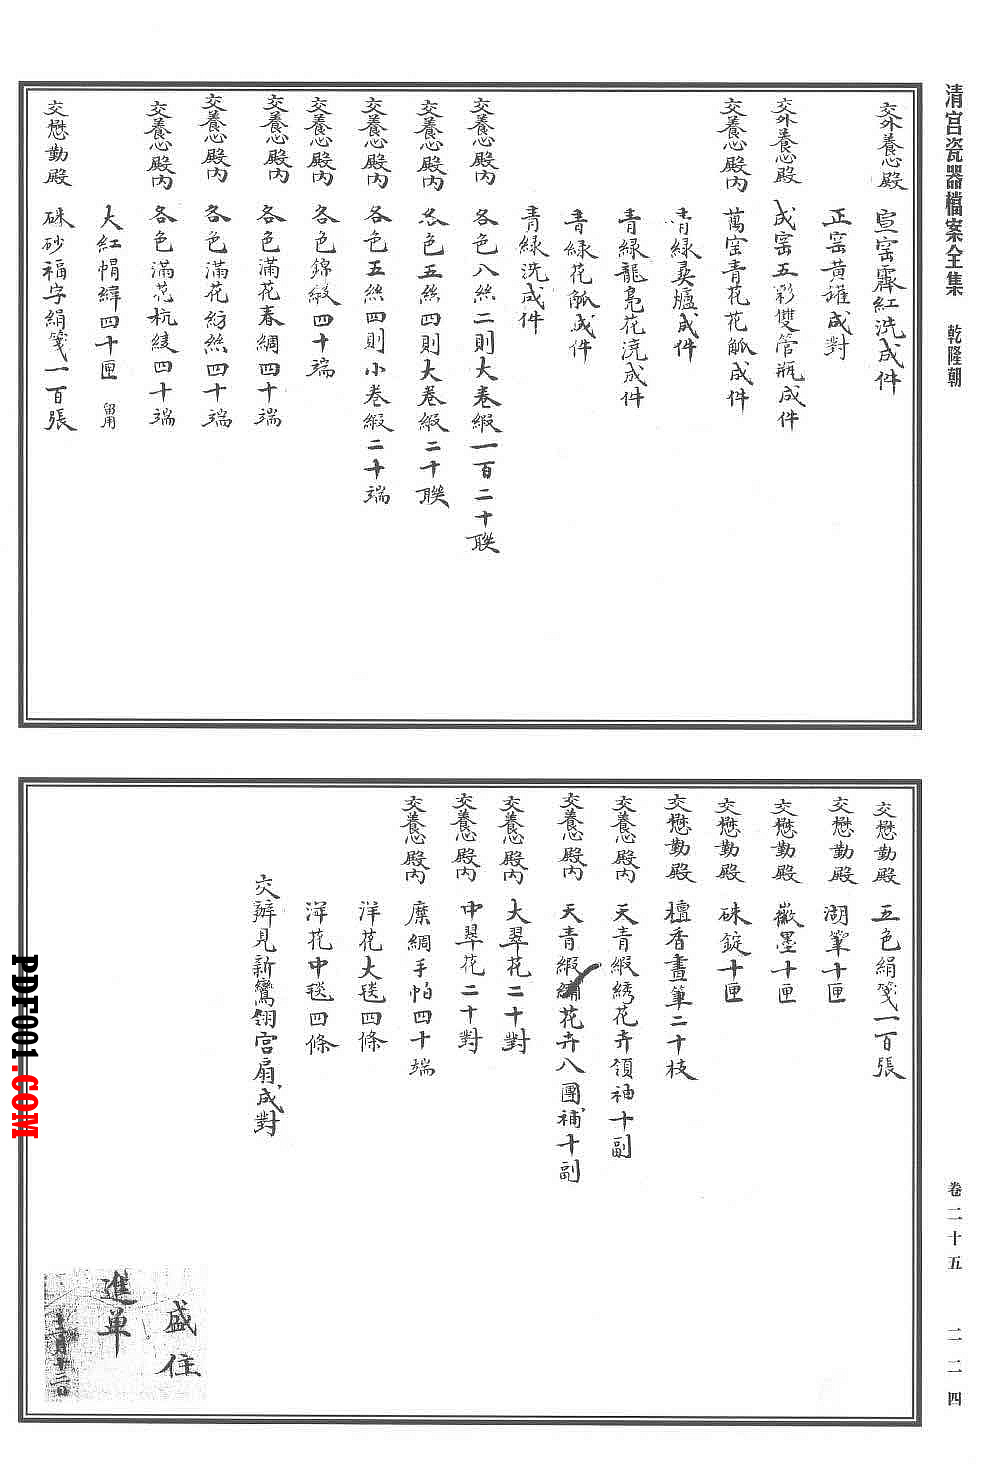 清宮瓷器檔案全集 乾隆朝
交外養心殿 宣窑霽紅洗成件
正窑黃罐成對
交外養心殿 成窑五彩雙管瓶成件
交養心殿內 萬窑青花花觚成件
青綠彝爐成件
青綠龍鳧花澆成件
青綠花觚成件
青綠洗成件
交養心殿內 各色八絲二則大卷緞一百二十聯
交養心殿內 各色五絲四則大卷緞二十聯
交養心殿內 各色五絲四則小卷緞二十端
交養心殿內 各色錦緞四十端
交養心殿內 各色滿花春綢四十端
交養心殿內 各色滿花紡絲四十端
交養心殿內 各色滿花杭綾四十端
大紅帽緯四十匣 留用
交懋勤殿 硃砂福字絹箋一百張
交懋勤殿 五色絹箋一百張
交懋勤殿 湖筆十匣
交懋勤殿 徽墨十匣
交懋勤殿 硃錠十匣
交懋勤殿 檀香畫筆二十枝
交養心殿內 天青緞綉花卉領袖十副
交養心殿內 天青緞繡花卉八團補十副
交養心殿內 大翠花二十對
交養心殿內 中翠花二十對
交養心殿內 縻綢手帕四十端
洋花大毯四條
洋花中毯四條
交辦見新鸞翎宮扇成對
盛住
進單
十二月十三日
卷二十五 二二四
PDF001.COM